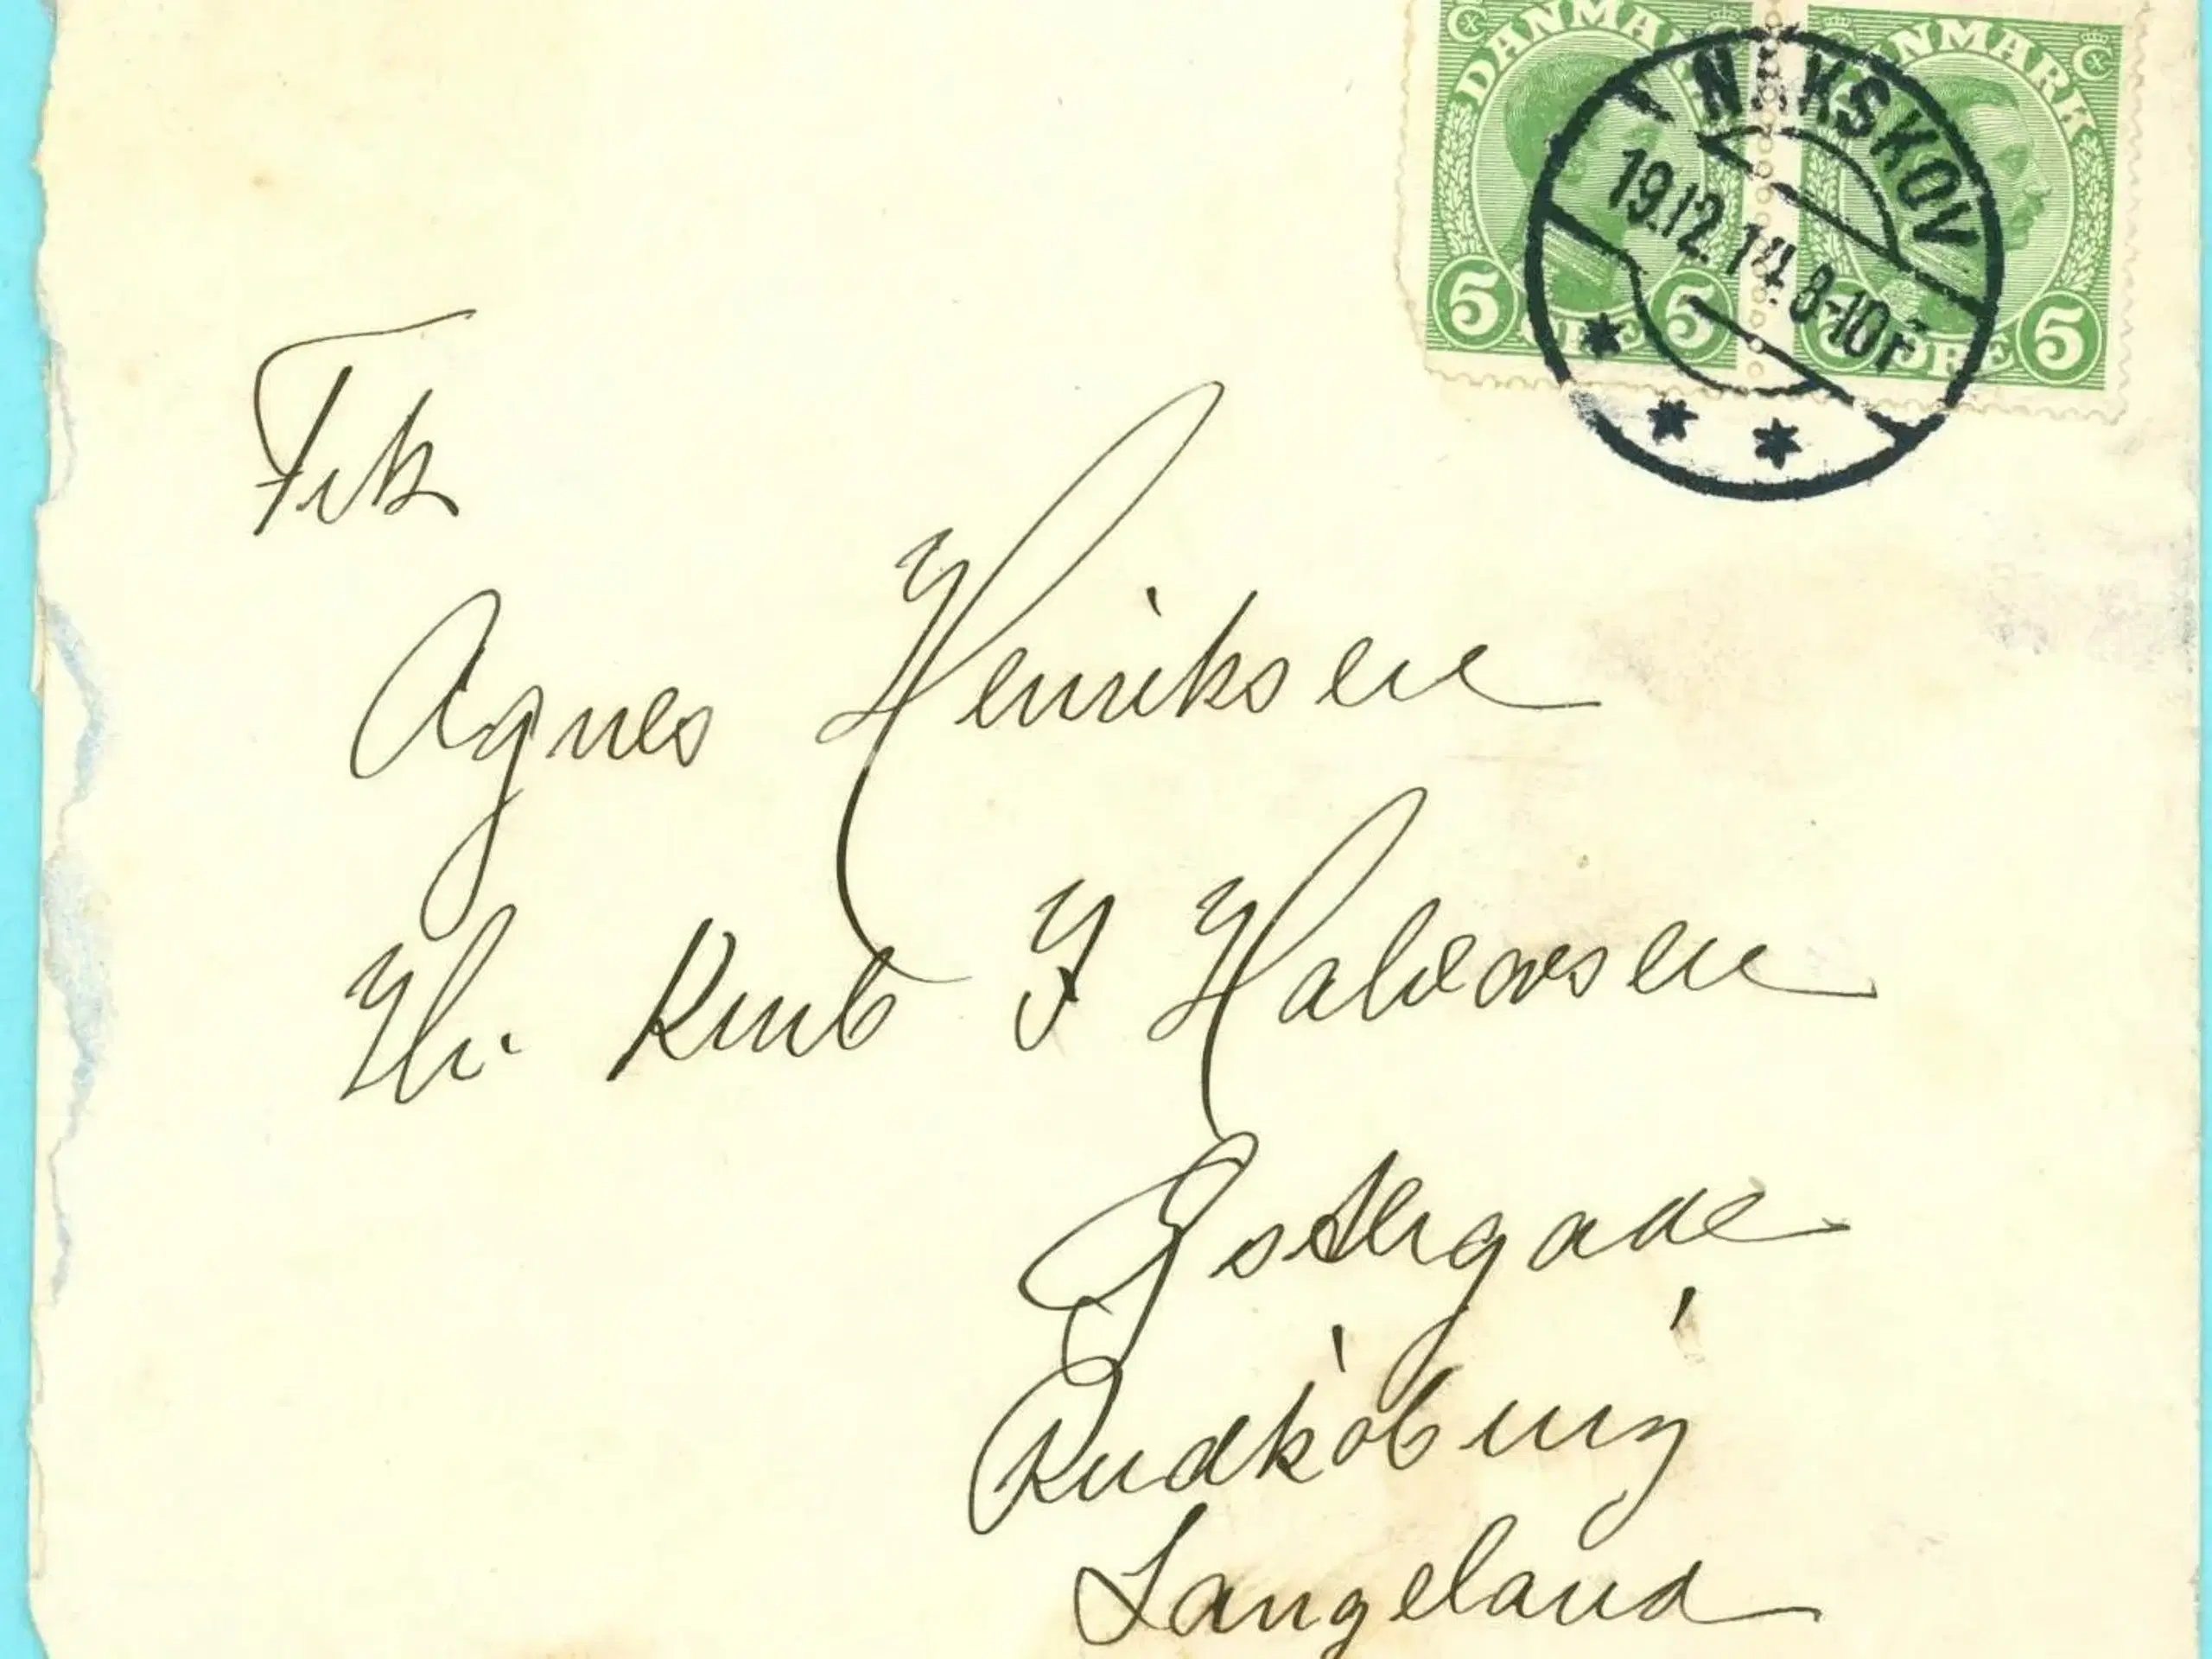 DANMARK DANMARK
NAKSKOV
19.12.14. 8-10F
5 ØRE 5 5 ØRE 5
Frk
Agnes Henriksen
Hr. Kmb I Halvorsen
Østergade
Rudkøbing
Langeland